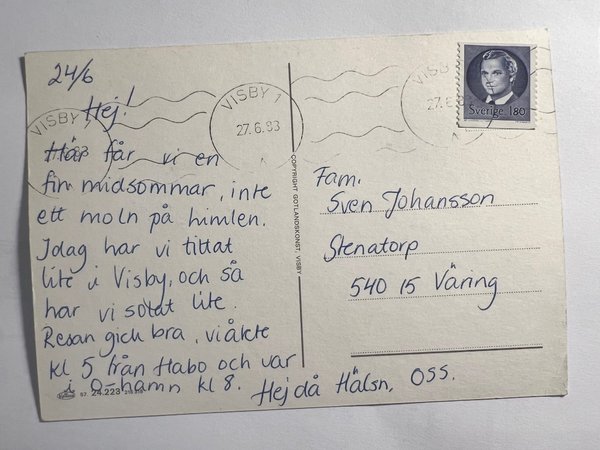 24/6
Hej!
Här får vi en
fin midsommar, inte
ett moln på himlen.
Idag har vi tittat
lite i Visby, och så
har vi solat lite.
Resan gick bra, vi åkte
kl 5 från Habo och var
i O-hamn kl 8.
Hej då Hälsn, OSS.
VISBY 1
27.6.83
VISBY 1
27.6.83
VISBY
27.6
Sverige 180
Fam.
Sven Johansson
Stenatorp
540 15 Väring
COPYRIGHT GOTLANDSKONST, VISBY
57 24.223